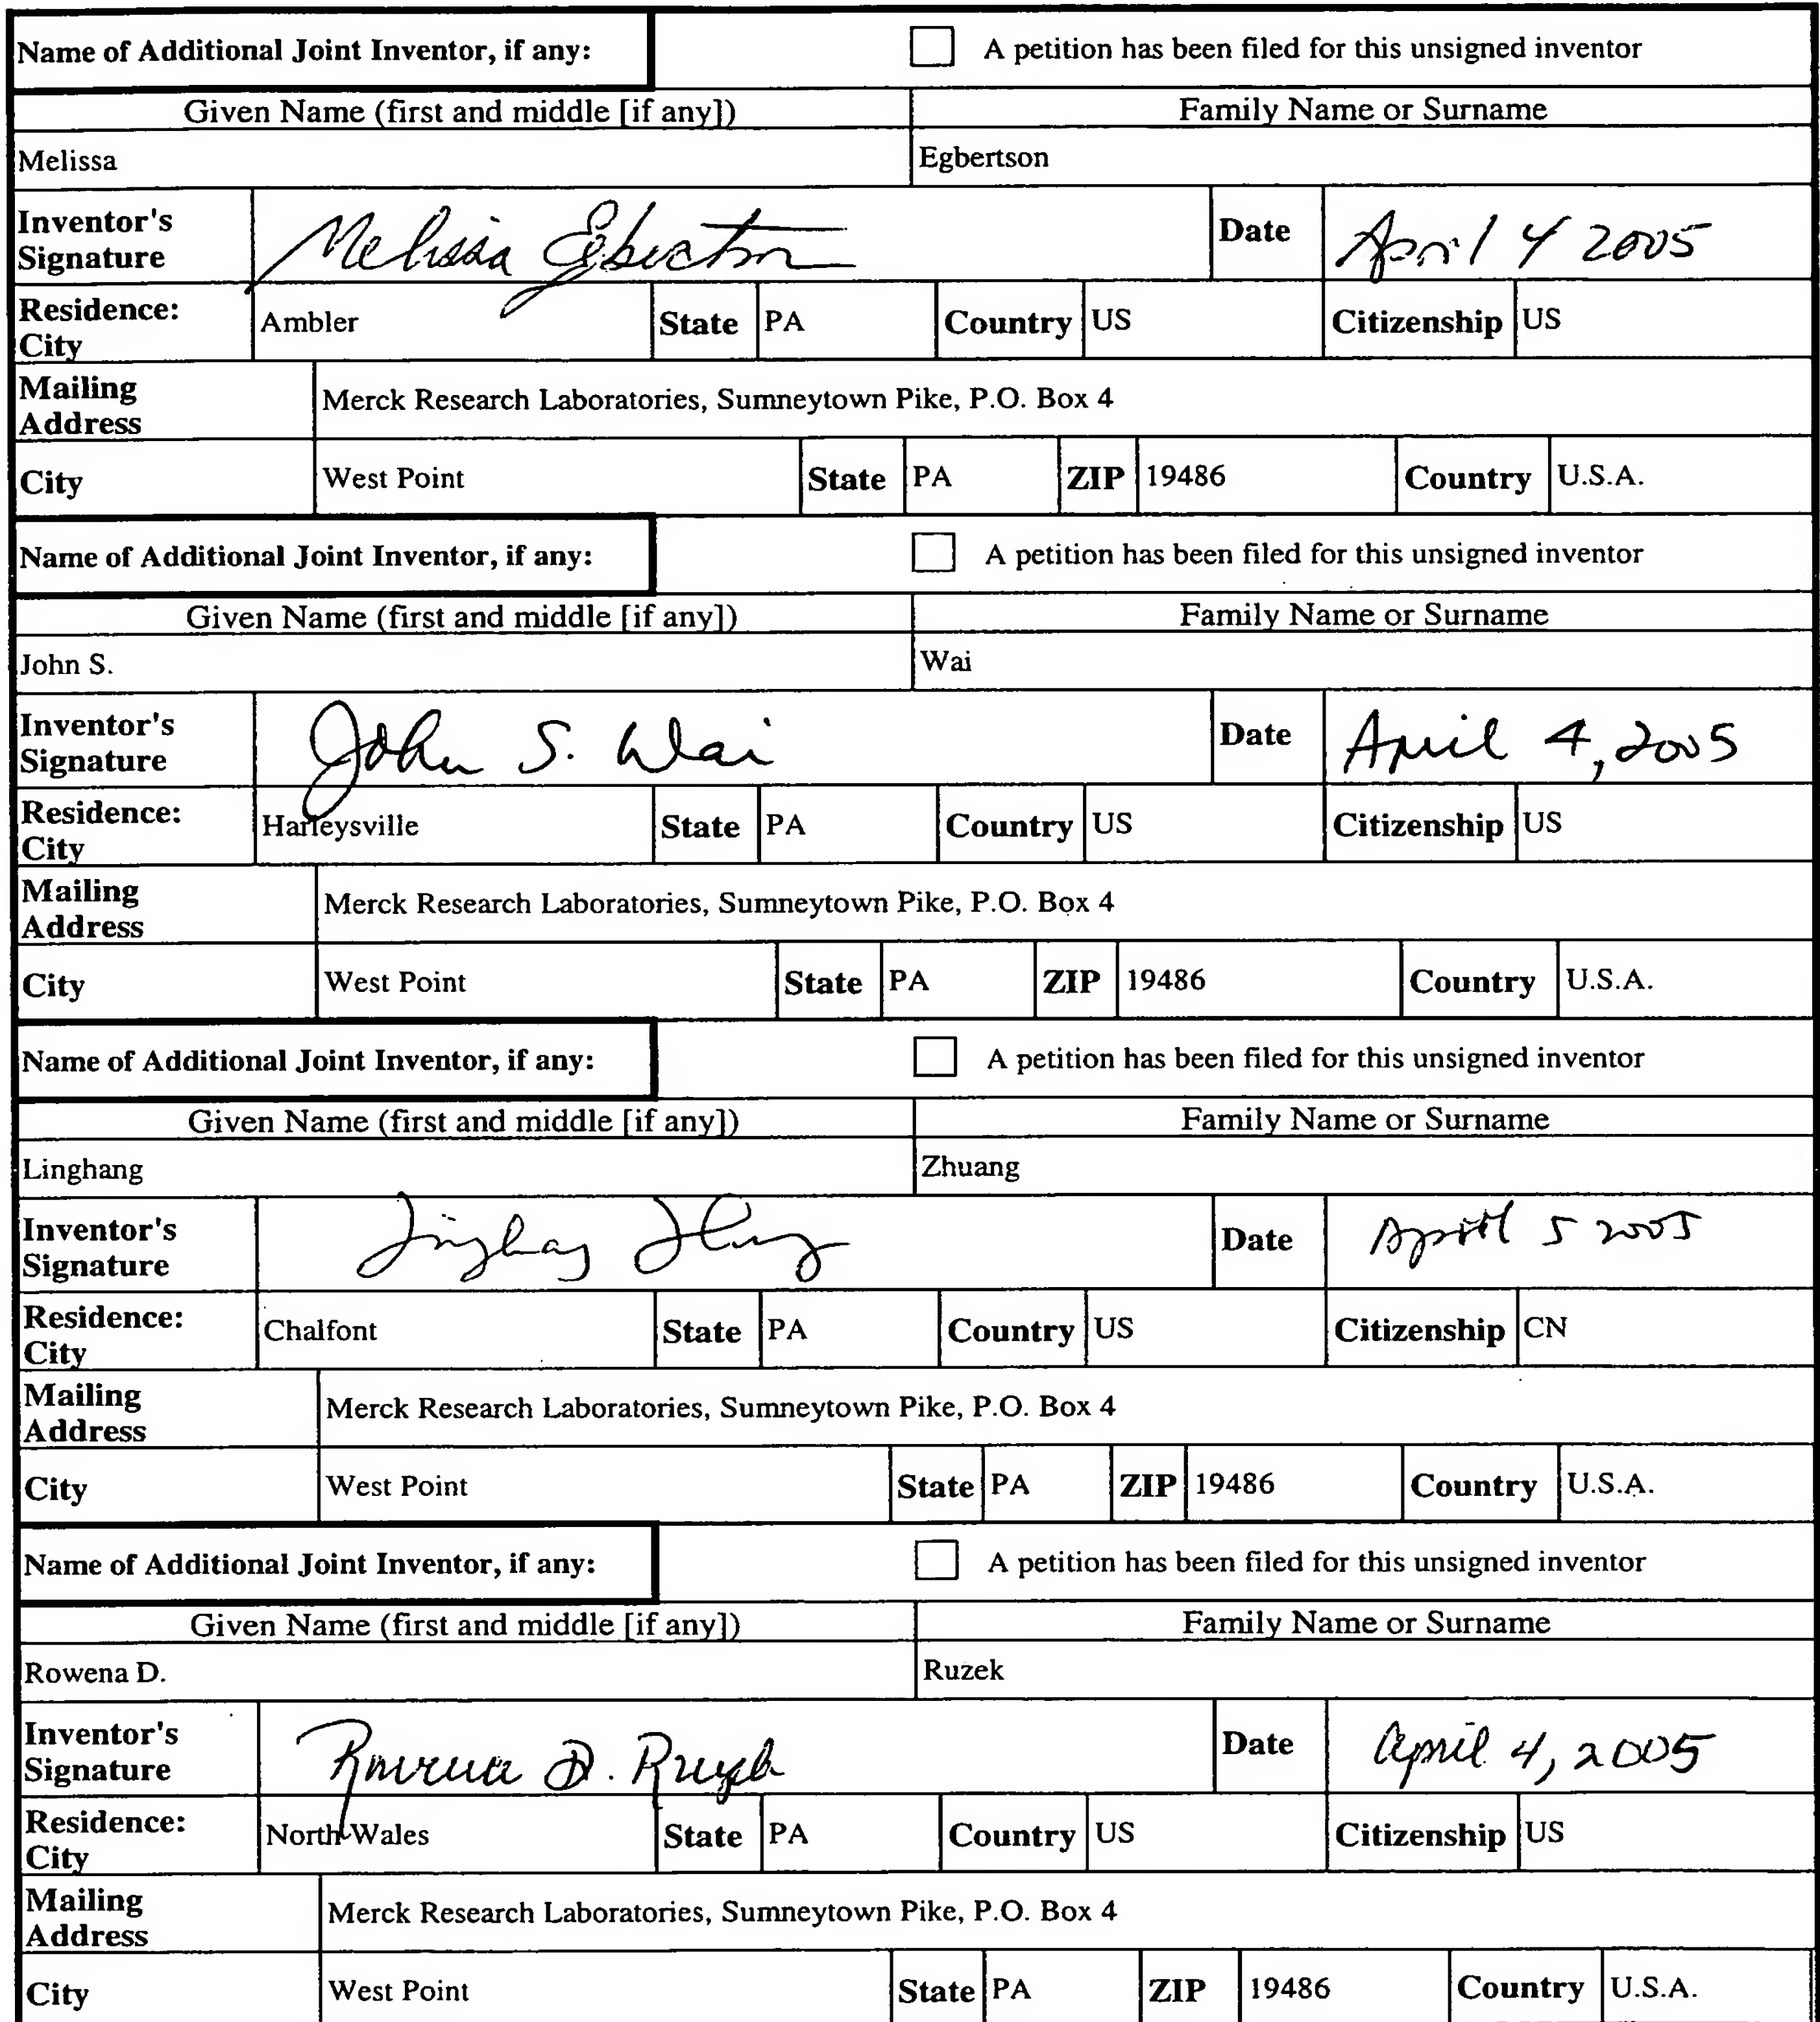 Name of Additional Joint Inventor, if any: ☐ A petition has been filed for this unsigned inventor
Given Name (first and middle [if any]) Family Name or Surname
Melissa Egbertson
Inventor's Signature Melissa Egbertson Date April 4 2005
Residence: City Ambler State PA Country US Citizenship US
Mailing Address Merck Research Laboratories, Sumneytown Pike, P.O. Box 4
City West Point State PA ZIP 19486 Country U.S.A.
Name of Additional Joint Inventor, if any: ☐ A petition has been filed for this unsigned inventor
Given Name (first and middle [if any]) Family Name or Surname
John S. Wai
Inventor's Signature John S. Wai Date April 4, 2005
Residence: City Harleysville State PA Country US Citizenship US
Mailing Address Merck Research Laboratories, Sumneytown Pike, P.O. Box 4
City West Point State PA ZIP 19486 Country U.S.A.
Name of Additional Joint Inventor, if any: ☐ A petition has been filed for this unsigned inventor
Given Name (first and middle [if any]) Family Name or Surname
Linghang Zhuang
Inventor's Signature Linghang Zhuang Date April 5 2005
Residence: City Chalfont State PA Country US Citizenship CN
Mailing Address Merck Research Laboratories, Sumneytown Pike, P.O. Box 4
City West Point State PA ZIP 19486 Country U.S.A.
Name of Additional Joint Inventor, if any: ☐ A petition has been filed for this unsigned inventor
Given Name (first and middle [if any]) Family Name or Surname
Rowena D. Ruzek
Inventor's Signature Rowena D. Ruzek Date April 4, 2005
Residence: City North Wales State PA Country US Citizenship US
Mailing Address Merck Research Laboratories, Sumneytown Pike, P.O. Box 4
City West Point State PA ZIP 19486 Country U.S.A.